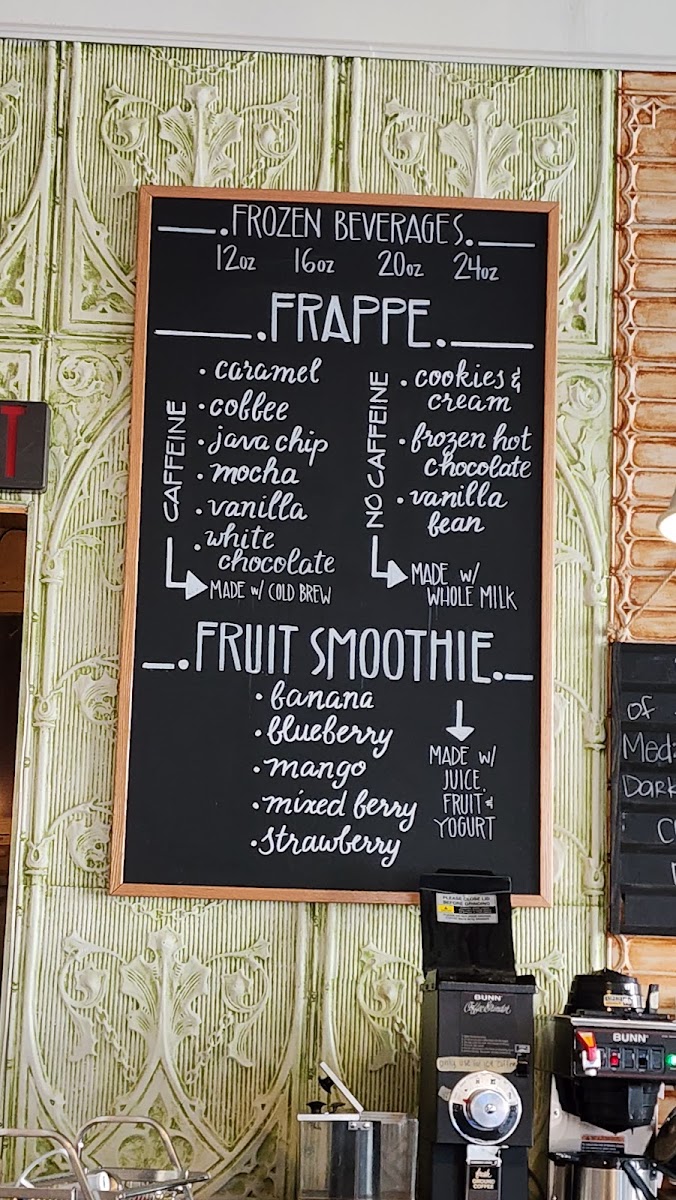 .FROZEN BEVERAGES.
12oz 16oz 20oz 24oz
.FRAPPE.
CAFFEINE
• caramel
• coffee
• java chip
• mocha
• vanilla
• white
chocolate
MADE w/ COLD BREW
NO CAFFEINE
• cookies &
cream
• frozen hot
chocolate
• vanilla
bean
MADE w/
WHOLE MILK
.FRUIT SMOOTHIE.
• banana
• blueberry
• mango
• mixed berry
• strawberry
MADE w/
JUICE,
FRUIT &
YOGURT
T
of
Dark
PLEASE CLOSE LID
BEFORE GRINDING
BUNN
BUNN